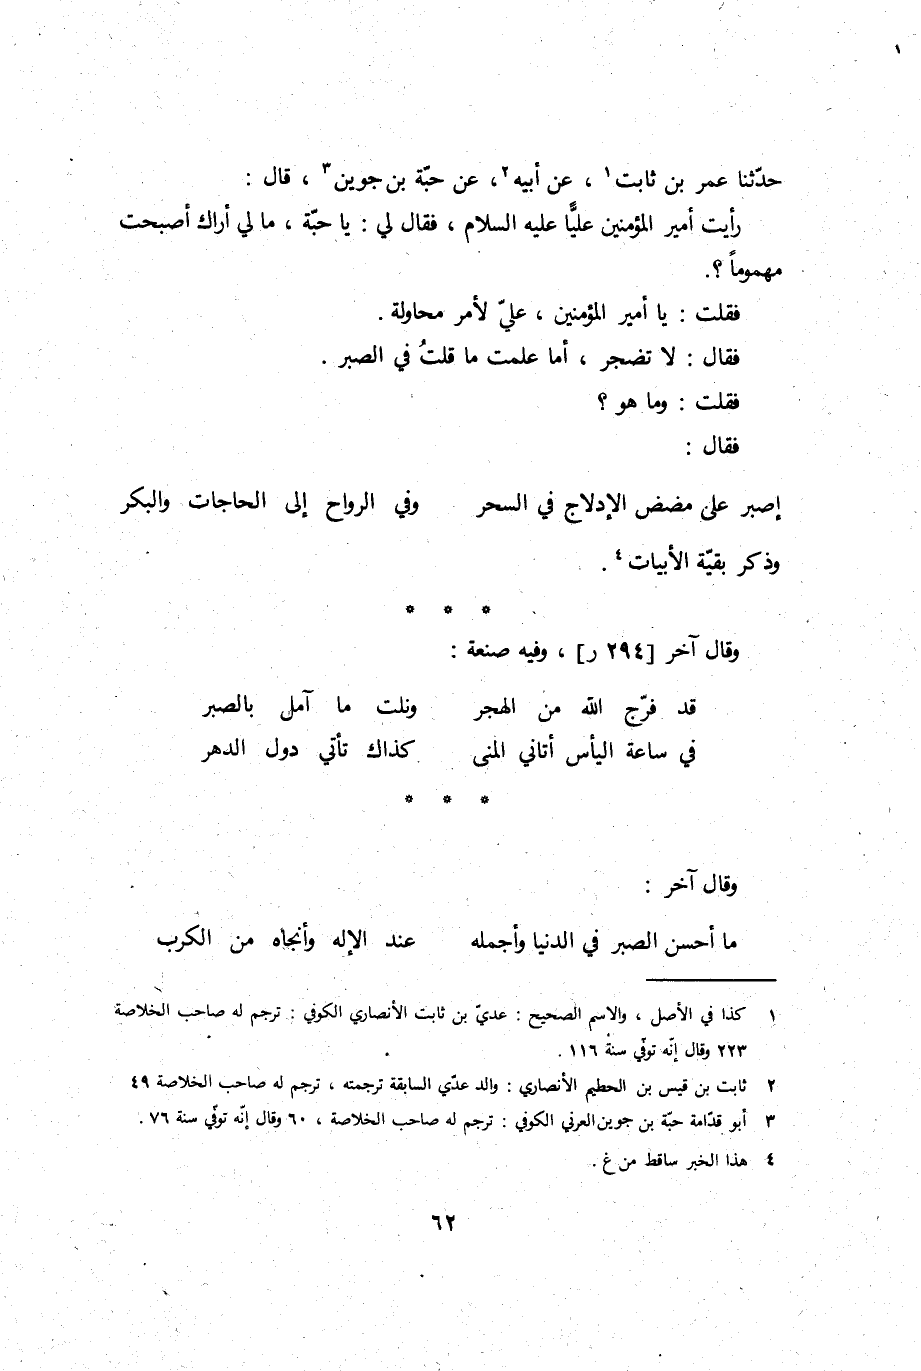 ١
حدّثنا عمر بن ثابت١ ، عن أبيه٢، عن حبّة بن جوين٣ ، قال :
رأيت أمير المؤمنين عليًّا عليه السلام ، فقال لي : يا حبّة ، ما لي أراك أصبحت
مهموماً ؟.
فقلت : يا أمير المؤمنين ، عليّ لأمر محاولة .
فقال : لا تضجر ، أما علمت ما قلتُ في الصبر .
فقلت : وما هو ؟
فقال :
إصبر على مضض الإدلاج في السحر وفي الرواح إلى الحاجات والبكر
وذكر بقيّة الأبيات٤ .
* * *
وقال آخر [٢٩٤ ر] ، وفيه صنعة :
قد فرّج الله من الهجر ونلت ما آمل بالصبر
في ساعة اليأس أتاني المنى كذاك تأتي دول الدهر
* * *
وقال آخر :
ما أحسن الصبر في الدنيا وأجمله عند الإله وأنجاه من الكرب
١ كذا في الأصل ، والاسم الصحيح : عديّ بن ثابت الأنصاري الكوفي : ترجم له صاحب الخلاصة
٢٢٣ وقال إنّه توفّي سنة ١١٦ .
٢ ثابت بن قيس بن الحطيم الأنصاري : والد عدّي السابقة ترجمته ، ترجم له صاحب الخلاصة ٤٩
٣ أبو قدّامة حبّة بن جوين العرني الكوفي : ترجم له صاحب الخلاصة ، ٦٠ وقال إنّه توفّي سنة ٧٦ .
٤ هذا الخبر ساقط من غ .
٦٢